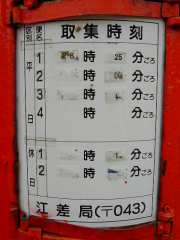 区別 便名 取集時刻
平日 1 時 25 分ごろ
2 時 分ごろ
3 時 分ごろ
4 時 分ごろ
休日 1 時 分ごろ
2 時 分ごろ
江差局(〒043)